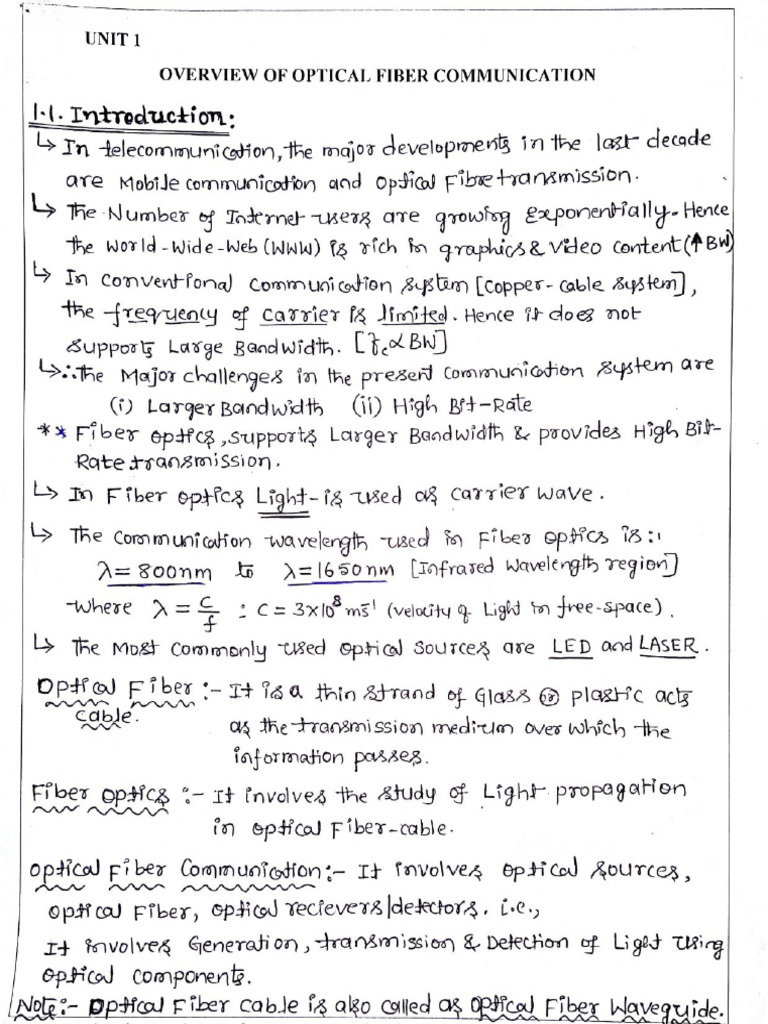 UNIT 1
OVERVIEW OF OPTICAL FIBER COMMUNICATION
1.1. Introduction:
↳ In telecommunication, the major developments in the last decade
are Mobile communication and Optical Fibre transmission.
↳ The Number of Internet users are growing exponentially. Hence
the World-Wide-Web (WWW) is rich in graphics & Video content (↑BW)
↳ In conventional communication system [copper-cable system],
the frequency of carrier is limited. Hence it does not
supports Large Bandwidth. [fc∝BW]
↳∴ The Major challenges in the present communication system are
(i) Larger Bandwidth (ii) High Bit-Rate
** Fiber optics, supports Larger Bandwidth & provides High Bit-
Rate transmission.
↳ In Fiber optics Light is used as carrier wave.
↳ The communication wavelength used in Fiber Optics is:
λ=800nm to λ=1650nm [Infrared Wavelength region]
Where λ = c/f : C = 3×10⁸ms⁻¹ (velocity of Light in free-space).
↳ The Most commonly used optical sources are LED and LASER.
Optical Fiber :- It is a thin strand of Glass (or) plastic acts
cable. as the transmission medium over which the
information passes.
Fiber optics :- It involves the study of Light propagation
in optical Fiber-cable.
Optical Fiber Communication :- It involves optical sources,
optical Fiber, optical recievers/detectors. i.e.,
It involves Generation, transmission & Detection of Light using
optical components.
Note:- Optical Fiber cable is also called as Optical Fiber Waveguide.